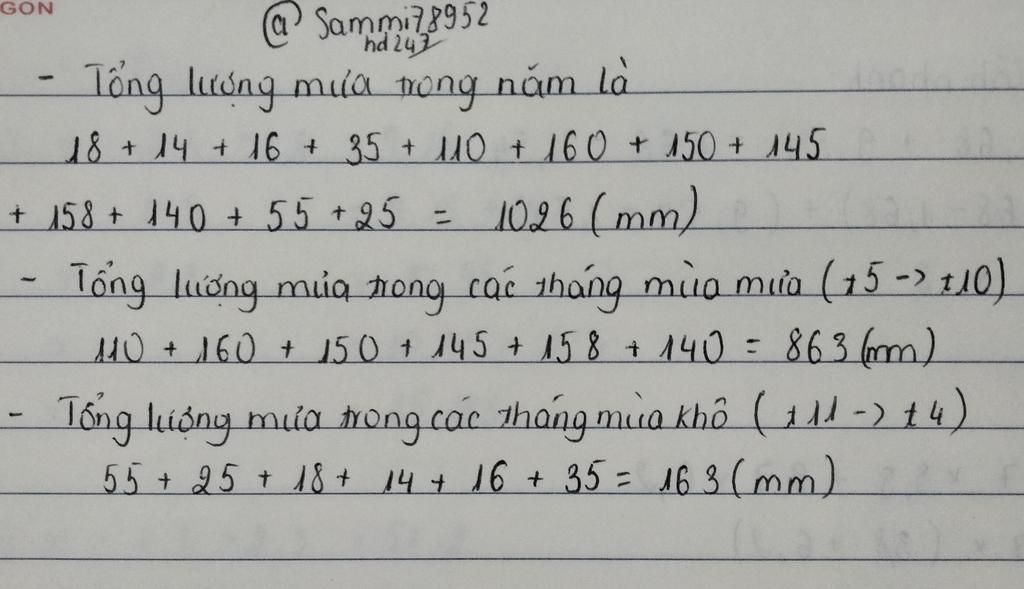 GON
@ Sammi78952
hd247
- Tổng lượng mưa trong năm là
18 + 14 + 16 + 35 + 110 + 160 + 150 + 145
+ 158 + 140 + 55 + 25 = 1026 (mm)
- Tổng lượng mưa trong các tháng mùa mưa (t5 -> t10)
110 + 160 + 150 + 145 + 158 + 140 = 863 (mm)
- Tổng lượng mưa trong các tháng mùa khô (t11 -> t4)
55 + 25 + 18 + 14 + 16 + 35 = 163 (mm)